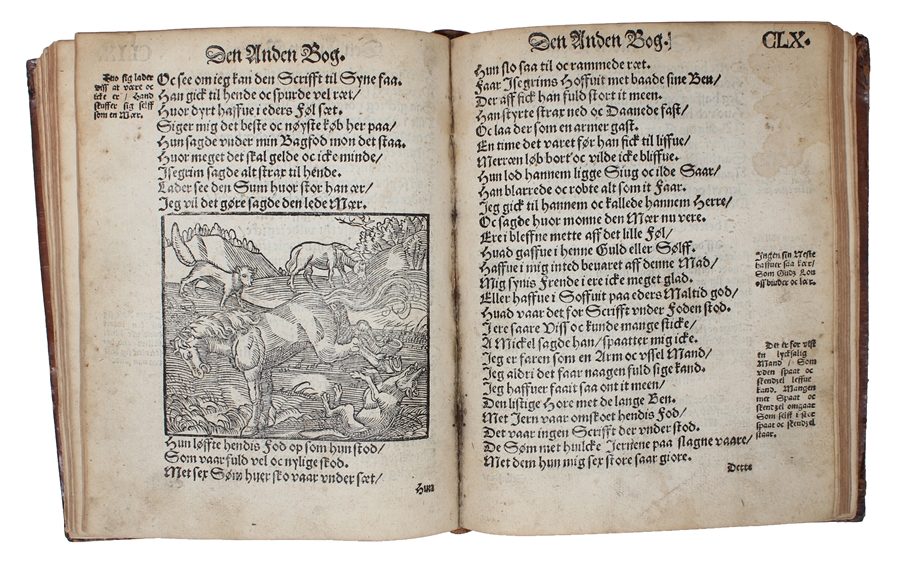 Den Anden Bog.
Oc see om ieg kan den Scrifft til Syne faa.
Han gick til hende oc spurde vel ræt/
Huor dyrt haffue i eders Føl sæt.
Siger mig det beste oc nøyste køb her paa/
Hun sagde vnder min Bagfod mon det staa.
Huor meget det skal gelde oc icke minde/
Isegrim sagde alt strax til hende.
Lader see den Sum huor stor han ær/
Jeg vil det gøre sagde den lede Mær.
Huo sig lader
viss at være oc
icke er / Hand
skuffer sig selff
som en Mær.
Hun løffte hendis Fod op som hun stod/
Som vaar fuld vel oc nylige skod.
Met sex Søm huer sko vaar vnder sæt/
Hun
Den Anden Bog.
CLX.
Hun slo saa til oc rammede ræt.
Faar Isegrims Hoffuit met baade sine Ben/
Der aff fick han fuld stort it meen.
Han styrte strax ned oc Daanede fast/
Oc laa der som en armer gast.
En time det varet før han fick til liffue/
Merræn løb bort oc vilde icke bliffue.
Hun lod hannem ligge Siug oc ilde Saar/
Han blarrede oc robte alt som it Faar.
Jeg gick til hannem oc kallede hannem Herre/
Oc sagde huor monne den Mær nu vere.
Ere i bleffne mette aff det lille Føl/
Huad gaff hu i henne Guld eller Sølff.
Haffue i mig inted beuaret aff denne Mad/
Mig synis Frende i ere icke meget glad.
Eller haffue i Soffuit paa eders Maltid god/
Huad vaar det for Scrifft vnder Foden stod.
I ere saare Viss oc kunde mange sticke/
A Mickel sagde han/ spaatter mig icke.
Jeg er faren som en Arm oc vssel Mand/
Jeg aldri det faar naagen fuld sige kand.
Jeg haffuer faait saa ont it meen/
Den listige Hore met de lange Ben.
Met Jern vaar omskoet hendis Fod/
Det vaar ingen Scrifft der vnder stod.
De Søm met huilcke Jerniene paa slagne vaare/
Met dem hun mig sex store saar giore.
Ingen sin Neste
haffuer saa kær/
Som Gudz Lou
oss biuder oc lær.
Det er for vist
en lycksalig
Mand / Som
vden spaat oc
skendzel leffue
kand. Mangen
met Spaat oc
skendzel omgaar
Som selff i stor
spaat oc skendzel
staar.
Dette